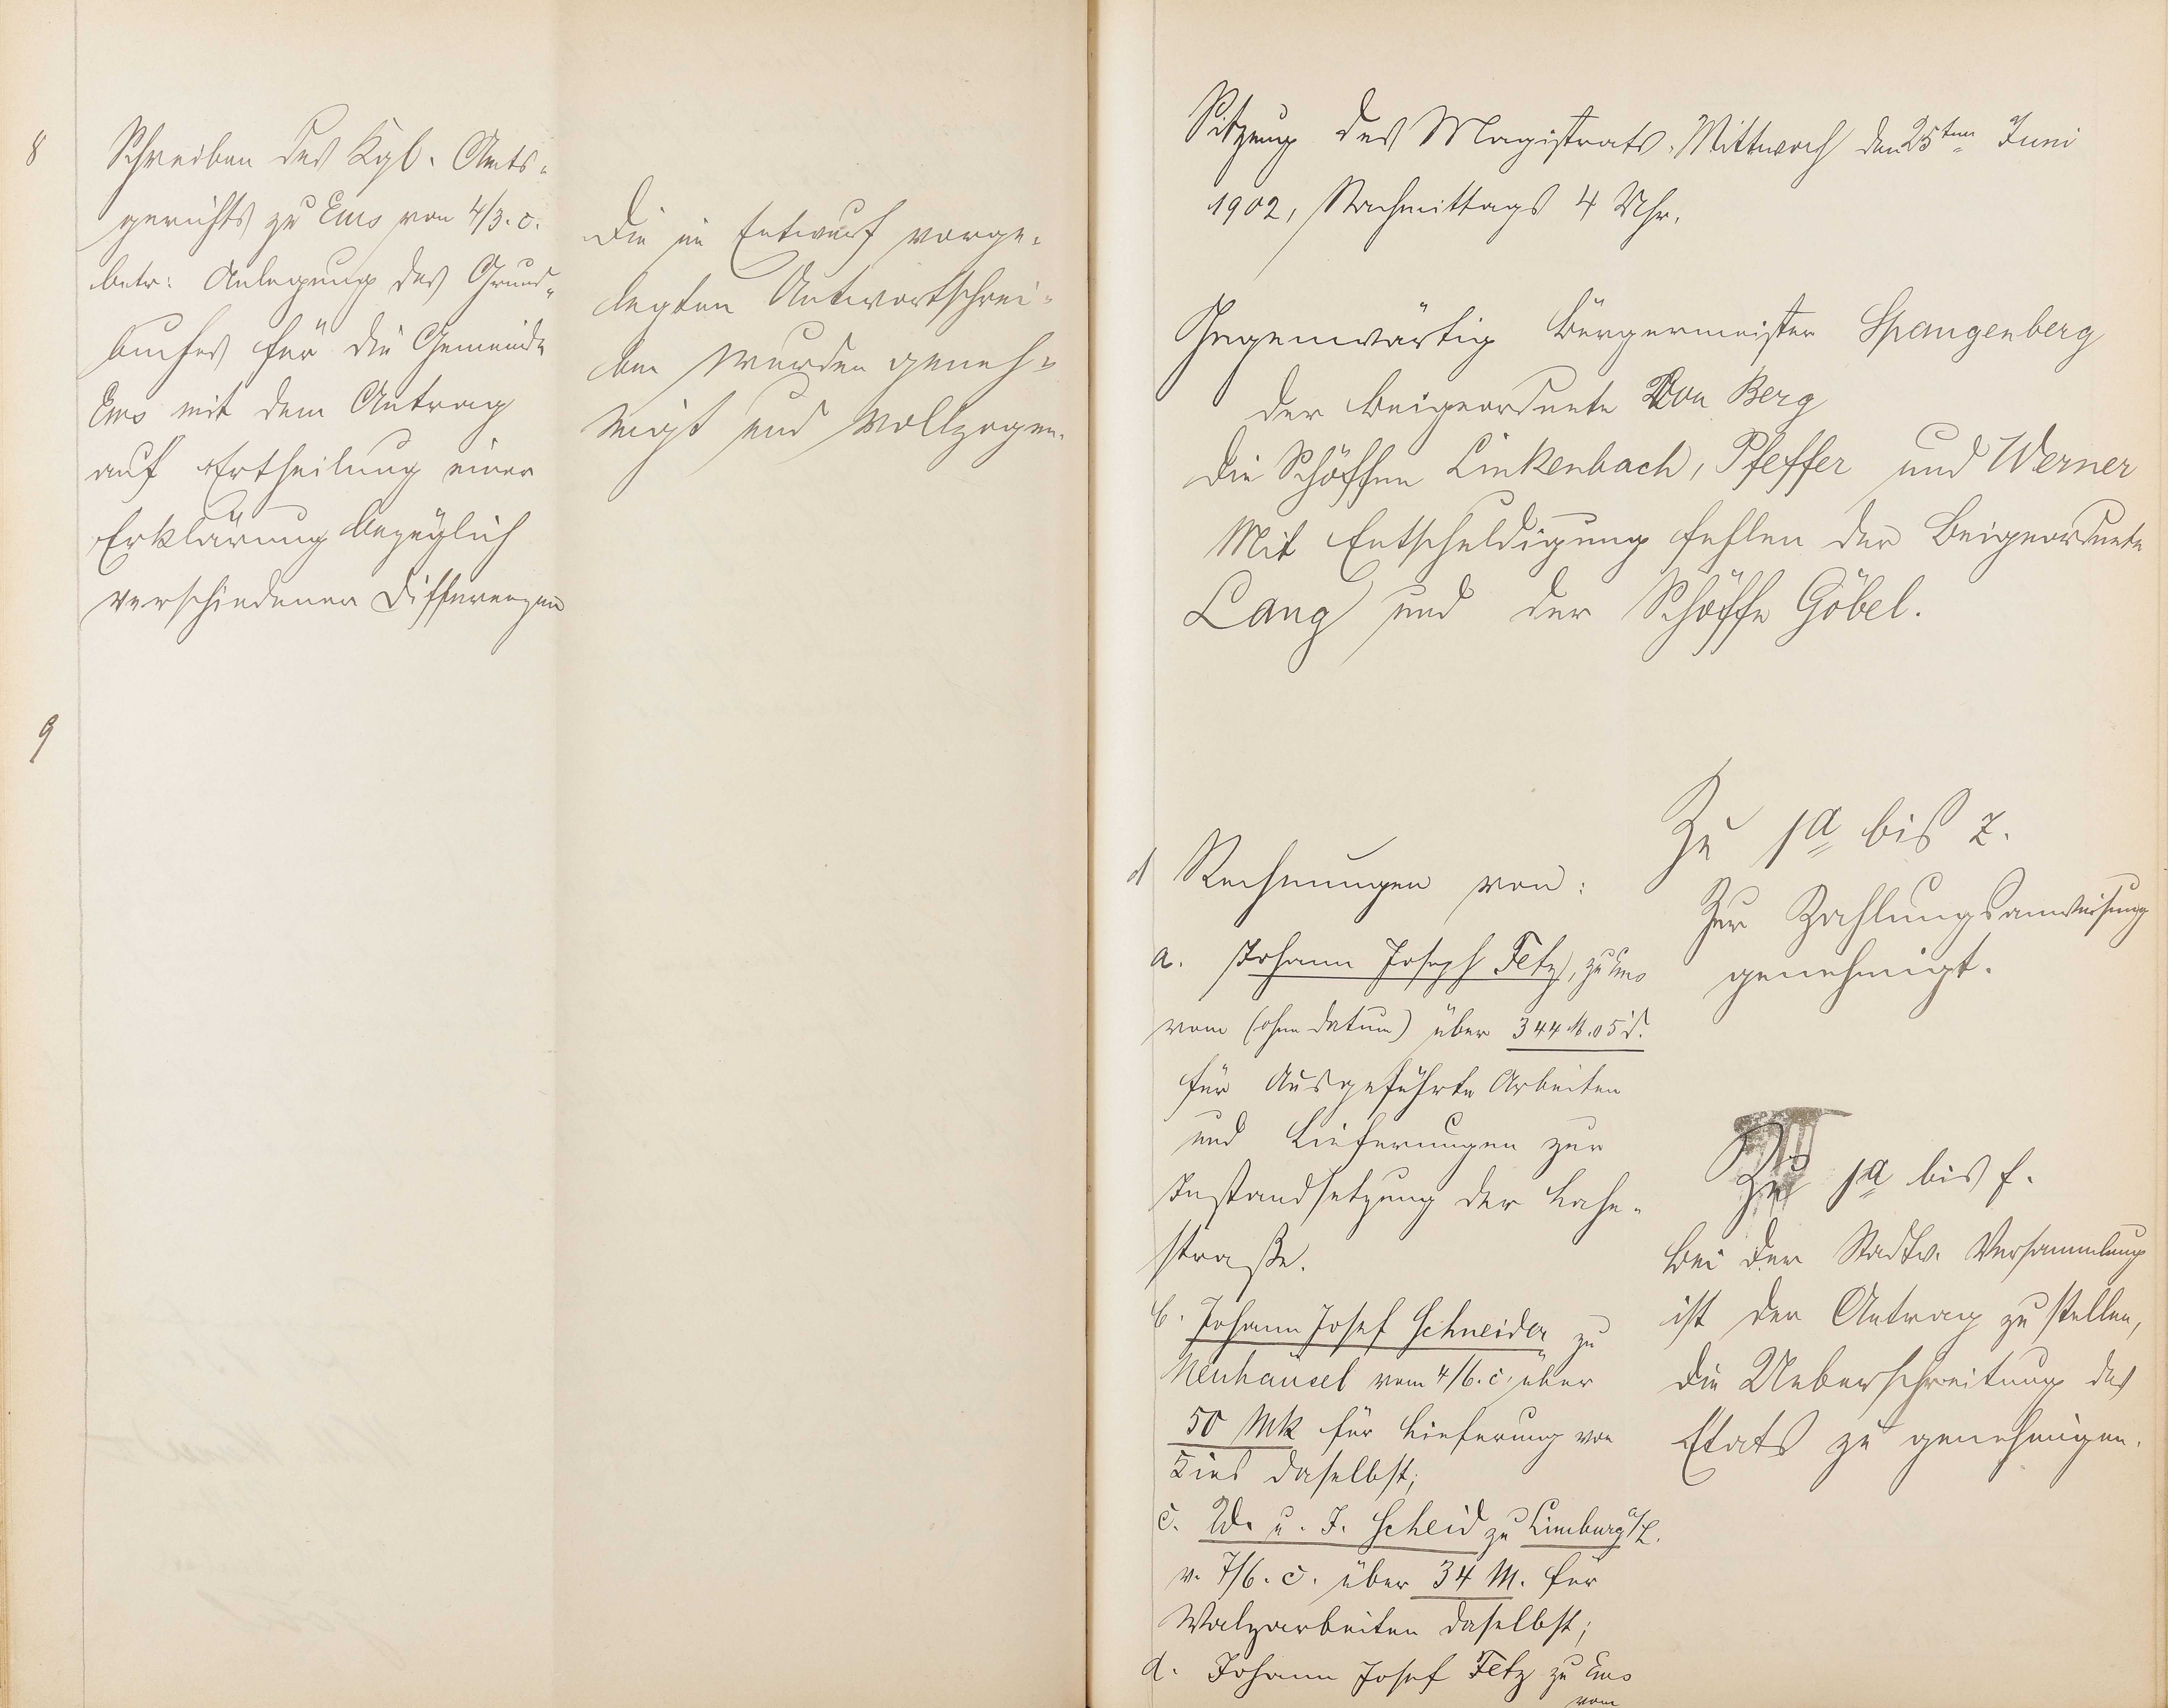 8
Schreiben des Kgl. Amts-
gerichts zu Ems von 4/3. c.
betr: Anlegung des Grund-
buches für die Gemeinde
Ems mit dem Antrag
auf Ertheilung einer
Erklärung bezüglich
verschiedener Differenzen
Die im Entwurf vorge-
legten Antwortschrei-
ben wurden geneh-
migt und vollzogen.
9
Sitzung des Magistrats, Mittwoch den 25ten Juni
1902, Nachmittags 4 Uhr.
Gegenwärtig Bürgermeister Spangenberg
der Beigeordnete Von Berg
die Schöffen Linkenbach, Pfeffer und Werner
Mit Entschuldigung fehlen der Beigeordnete
Lang und der Schöffe Göbel.
1 Rechnungen von:
a. Johann Joseph Fetz, zu Ems
vom (ohne Datum) über 344 M. 05 d.
für Ausgeführte Arbeiten
und Lieferungen zur
Instandsetzung der Lahn-
straße.
b. Johann Josef Schneider zu
Neuhäusel vom 4/6. c. über
50 Mk für Lieferung von
Kies daselbst;
c. W. u. J. Scheid zu Limburg a/L.
v. 7/6. c. über 34 M. für
Walzarbeiten daselbst;
d. Johann Josef Fetz zu Ems
vom
Zu 1a bis z.
Zur Zahlungsanweisung
genehmigt.
Zu 1a bis f.
bei der Stadtv. Versammlung
ist der Antrag zu stellen,
die Ueberschreitung des
Etats zu genehmigen.